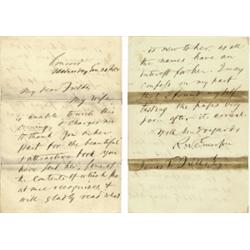 Concord
My dear Fields,
My wife
is unable to write this
evening, & charges me
to thank you
for the beautiful
& attractive book you
have sent her, some of
the contents of which she
at once recognises &
will gladly read what
is new to her, as all
the names have an
interest for her. I may
confess on my part
that I found myself
the papers very
soon after it
With kind regards,
R. W. Emerson
James T. Fields